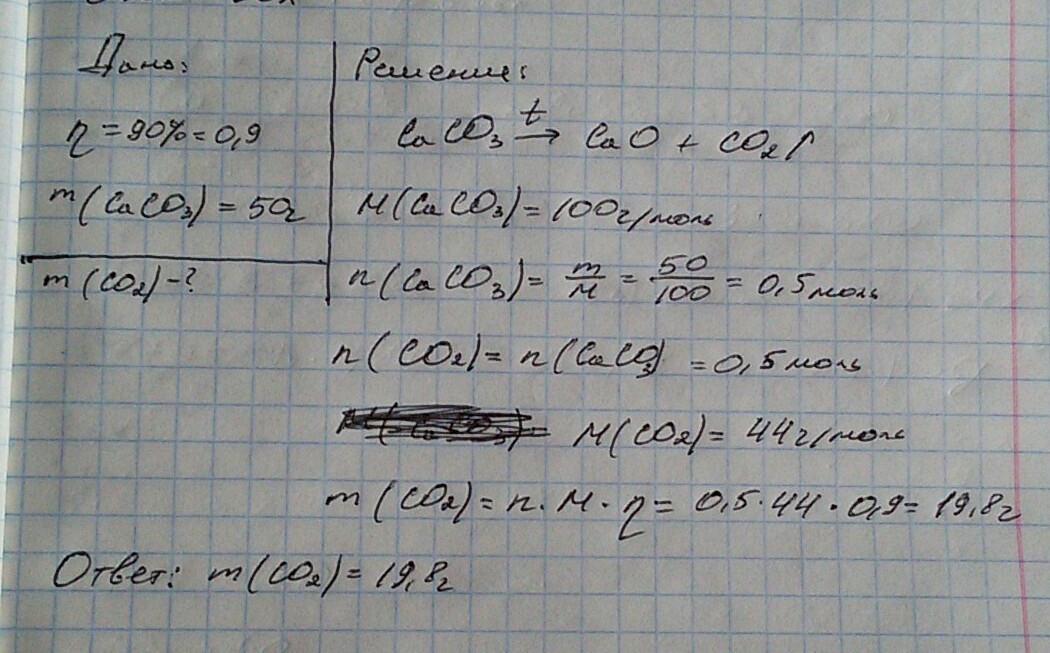 Дано:
η = 90% = 0,9
m(CaCO₃) = 50г
m(CO₂) - ?
Решение:
CaCO₃ →ᵗ CaO + CO₂↑
M(CaCO₃) = 100г/моль
n(CaCO₃) = m/M = 50/100 = 0,5моль
n(CO₂) = n(CaCO₃) = 0,5моль
M(CO₂) = 44г/моль
m(CO₂) = n · M · η = 0,5 · 44 · 0,9 = 19,8г
Ответ: m(CO₂) = 19,8г